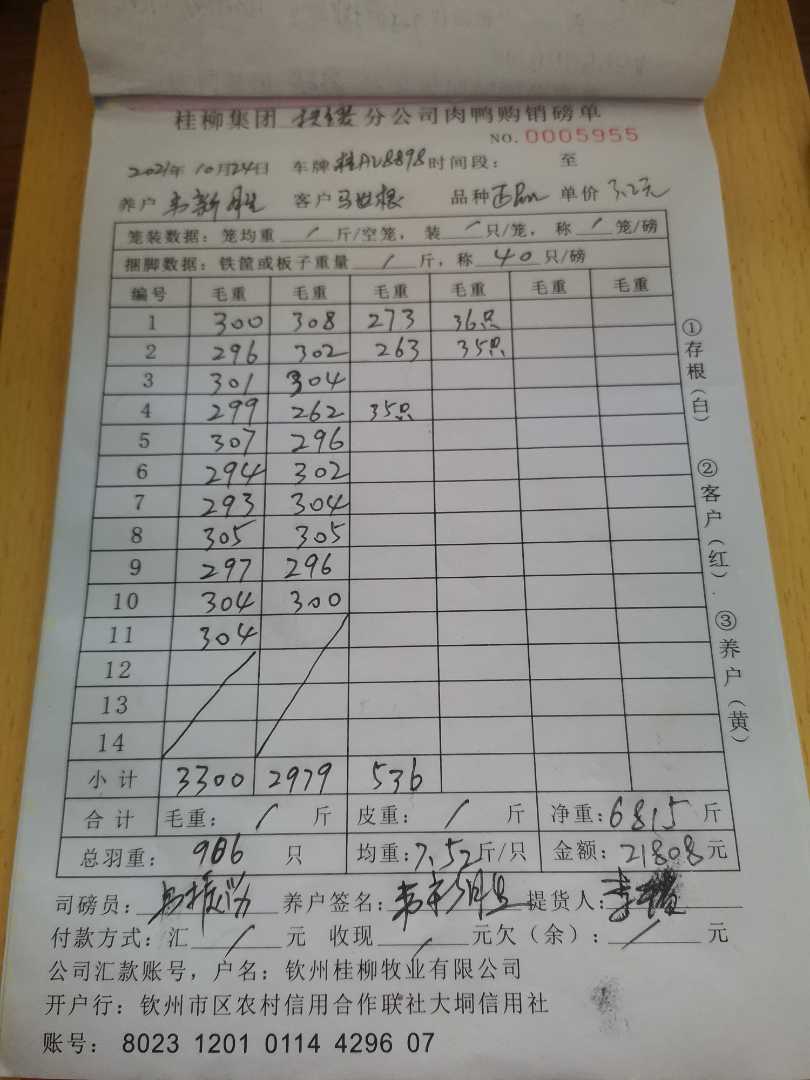 桂柳集团 扶绥 分公司肉鸭购销磅单
NO. 0005955
2021年10月24日 车牌 桂AU8898 时间段: 至
养户 韦新胜 客户 马世根 品种 单价 3.2元
笼装数据: 笼均重 / 斤/空笼, 装 / 只/笼, 称 / 笼/磅
捆脚数据: 铁筐或板子重量 / 斤, 称 40 只/磅
编号 毛重 毛重 毛重 毛重 毛重 毛重
1 300 308 273 36只
2 296 302 263 35只
3 301 304
4 299 262 35只
5 307 296
6 294 302
7 293 304
8 305 305
9 297 296
10 304 300
11 304
12
13
14
小计 3300 2979 536
合计 毛重: / 斤 皮重: / 斤 净重: 6815 斤
总羽重: 906 只 均重: 7.52 斤/只 金额: 21808 元
司磅员: 养户签名: 提货人:
付款方式: 汇 / 元 收现 / 元欠(余): / 元
公司汇款账号, 户名: 钦州桂柳牧业有限公司
开户行: 钦州市区农村信用合作联社大垌信用社
账号: 8023 1201 0114 4296 07
①存根(白)
②客户(红)
③养户(黄)